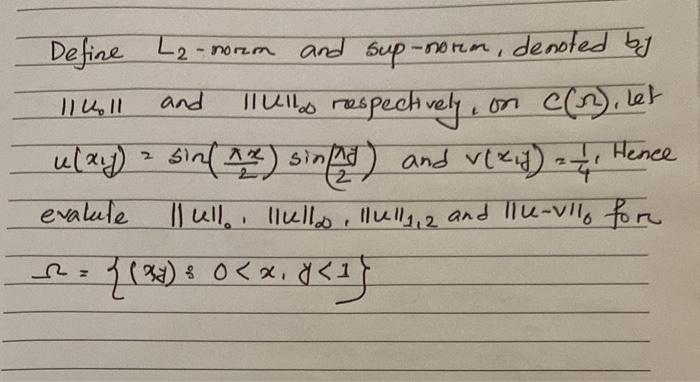 Define L₂-norm and sup-norm, denoted by
||u₀|| and ||u||∞ respectively, on C(Ω). Let
u(x,y) = sin(πx/2) sin(πy/2) and v(x,y) = 1/4. Hence
evalute ||u||₀, ||u||∞, ||u||₁,₂ and ||u-v||₀ for
Ω = {(x,y) : 0 < x, y < 1}